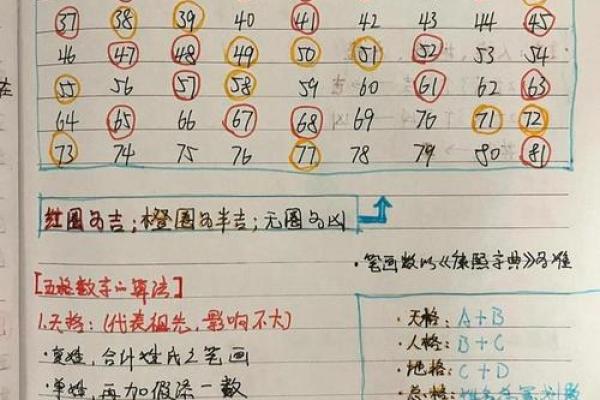 37 38 39 40 41 42 43 44 45
46 47 48 49 50 51 52 53 54
55 56 57 58 59 60 61 62 63
64 65 66 67 68 69 70 71 72
73 74 75 76 77 78 79 80 81
红圈为吉;橙圈为半吉;无圈为凶
·笔画数以《康熙字典》为准
[五格数字的算法]
1.天格:(代表祖先,影响不大)
·复姓,合计姓氏之笔画
·单姓,再加假添一数
·天格:A+B
·人格:B+C
·地格:C+D
·总格: